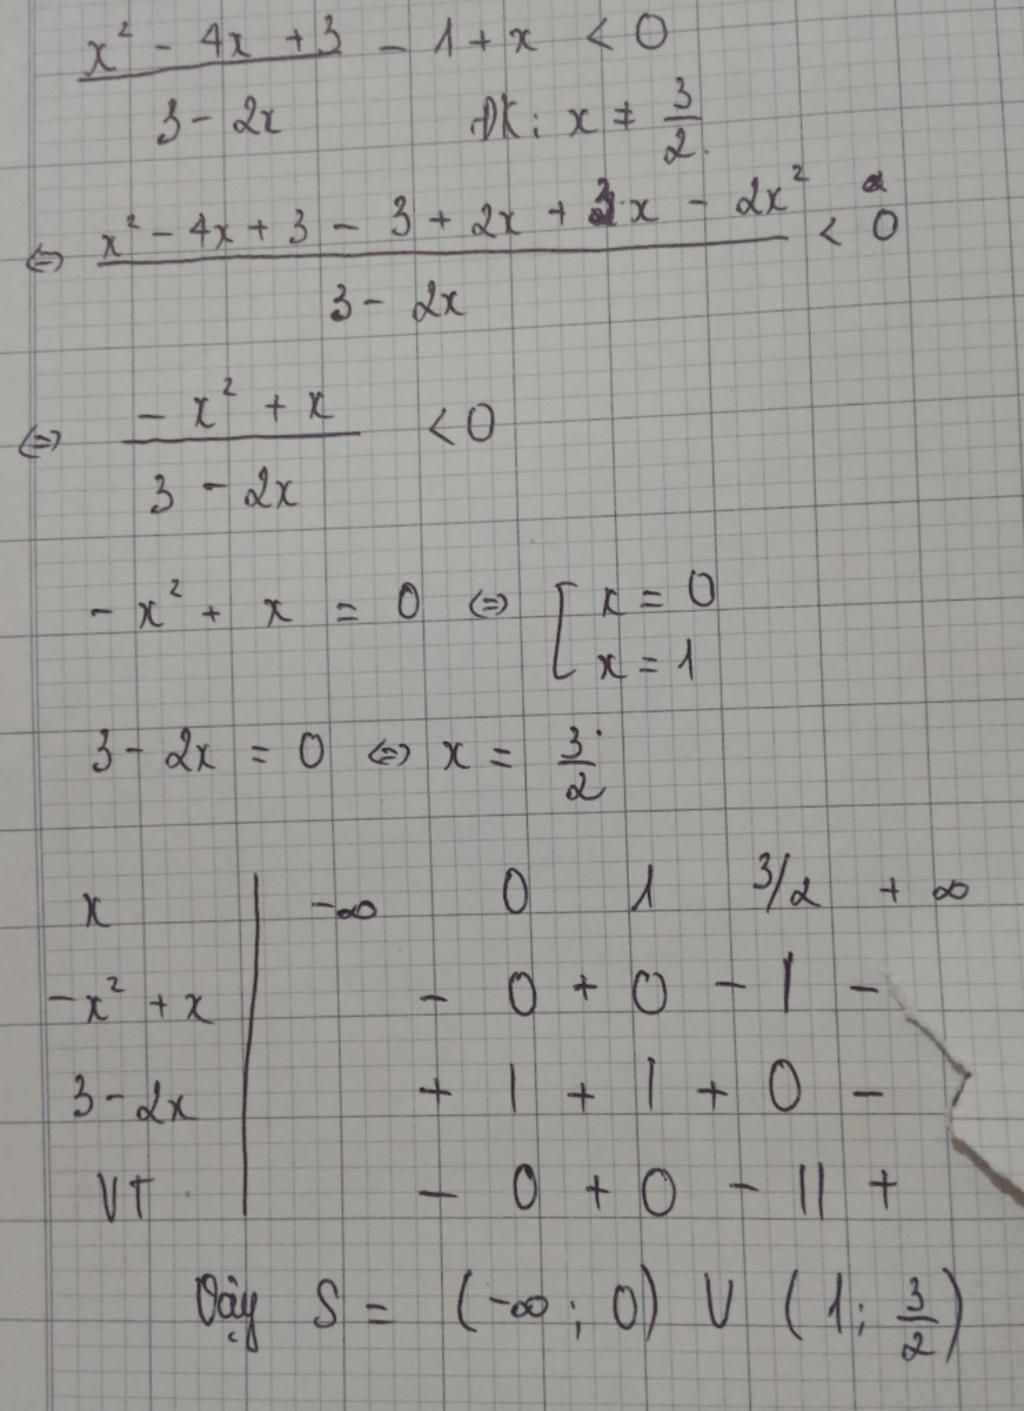 x² - 4x + 3 - 1 + x < 0
3 - 2x ĐK: x ≠ 3/2
⇔ x² - 4x + 3 - 3 + 2x + 3x - 2x² < 0
3 - 2x
⇔ - x² + x < 0
3 - 2x
- x² + x = 0 ⇔ [ x = 0
x = 1
3 - 2x = 0 ⇔ x = 3/2
x | -∞ 0 1 3/2 + ∞
-x² + x | - 0 + 0 - | -
3 - 2x | + | + | + 0 -
VT | - 0 + 0 - || +
Vậy S = (-∞; 0) ∪ (1; 3/2)